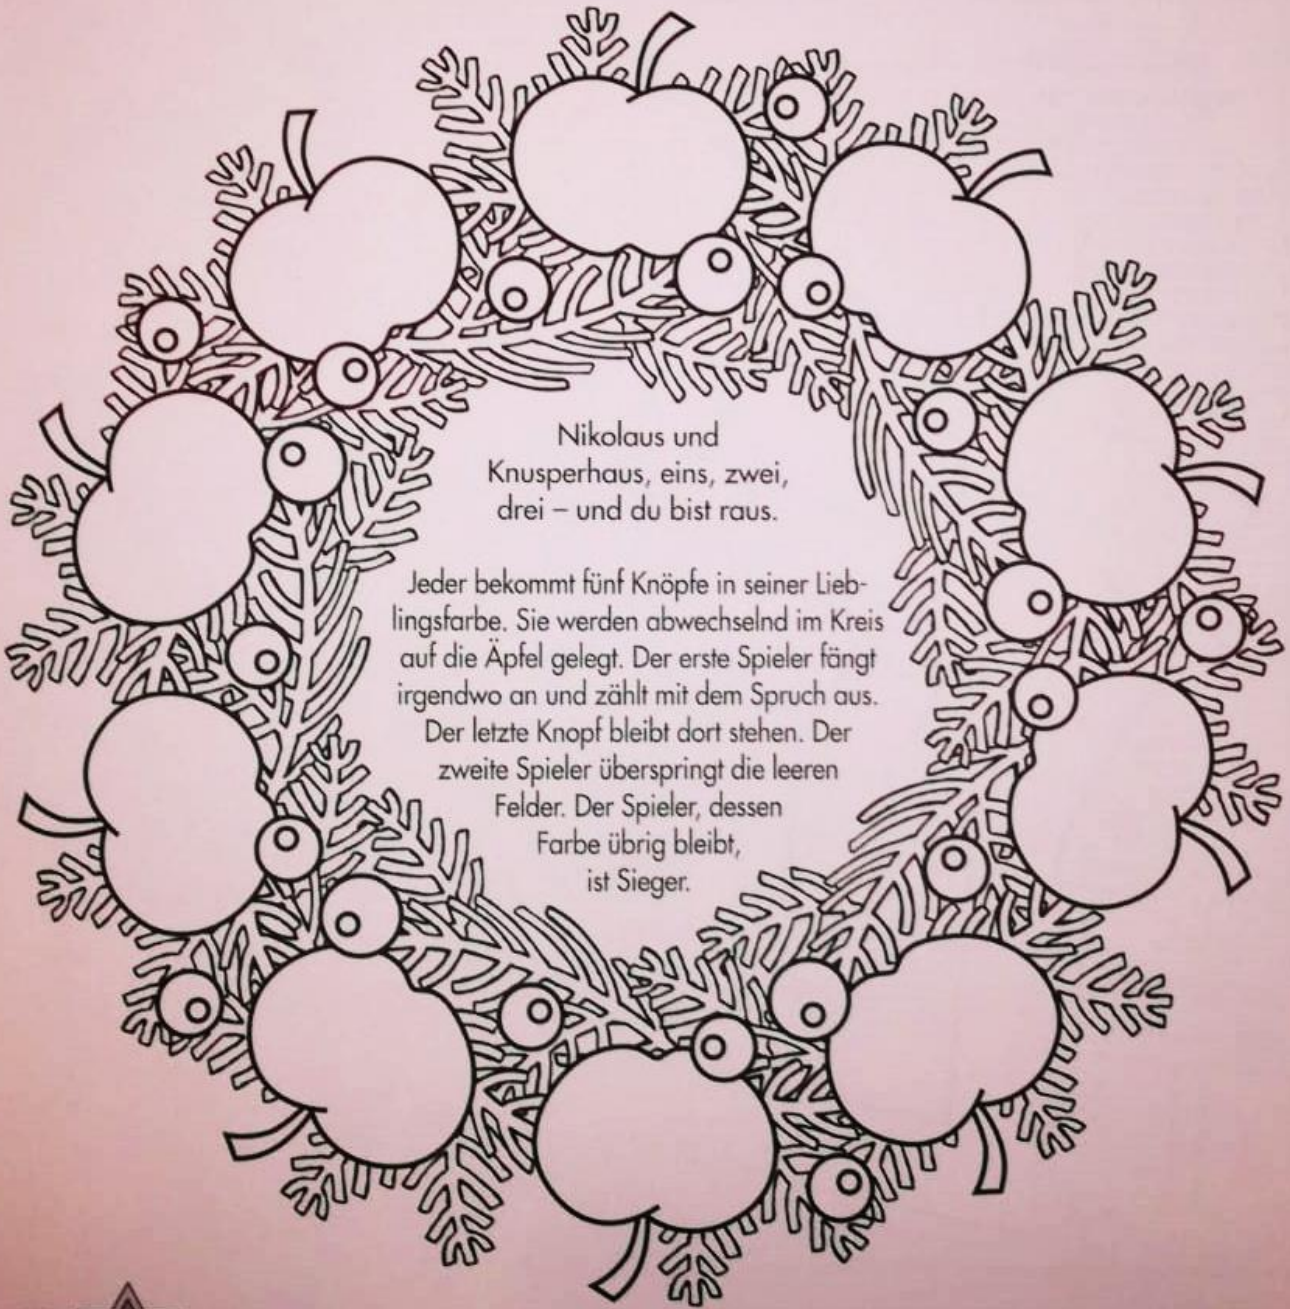 Nikolaus und
Knusperhaus, eins, zwei,
drei – und du bist raus.
Jeder bekommt fünf Knöpfe in seiner Lieb-
lingsfarbe. Sie werden abwechselnd im Kreis
auf die Äpfel gelegt. Der erste Spieler fängt
irgendwo an und zählt mit dem Spruch aus.
Der letzte Knopf bleibt dort stehen. Der
zweite Spieler überspringt die leeren
Felder. Der Spieler, dessen
Farbe übrig bleibt,
ist Sieger.